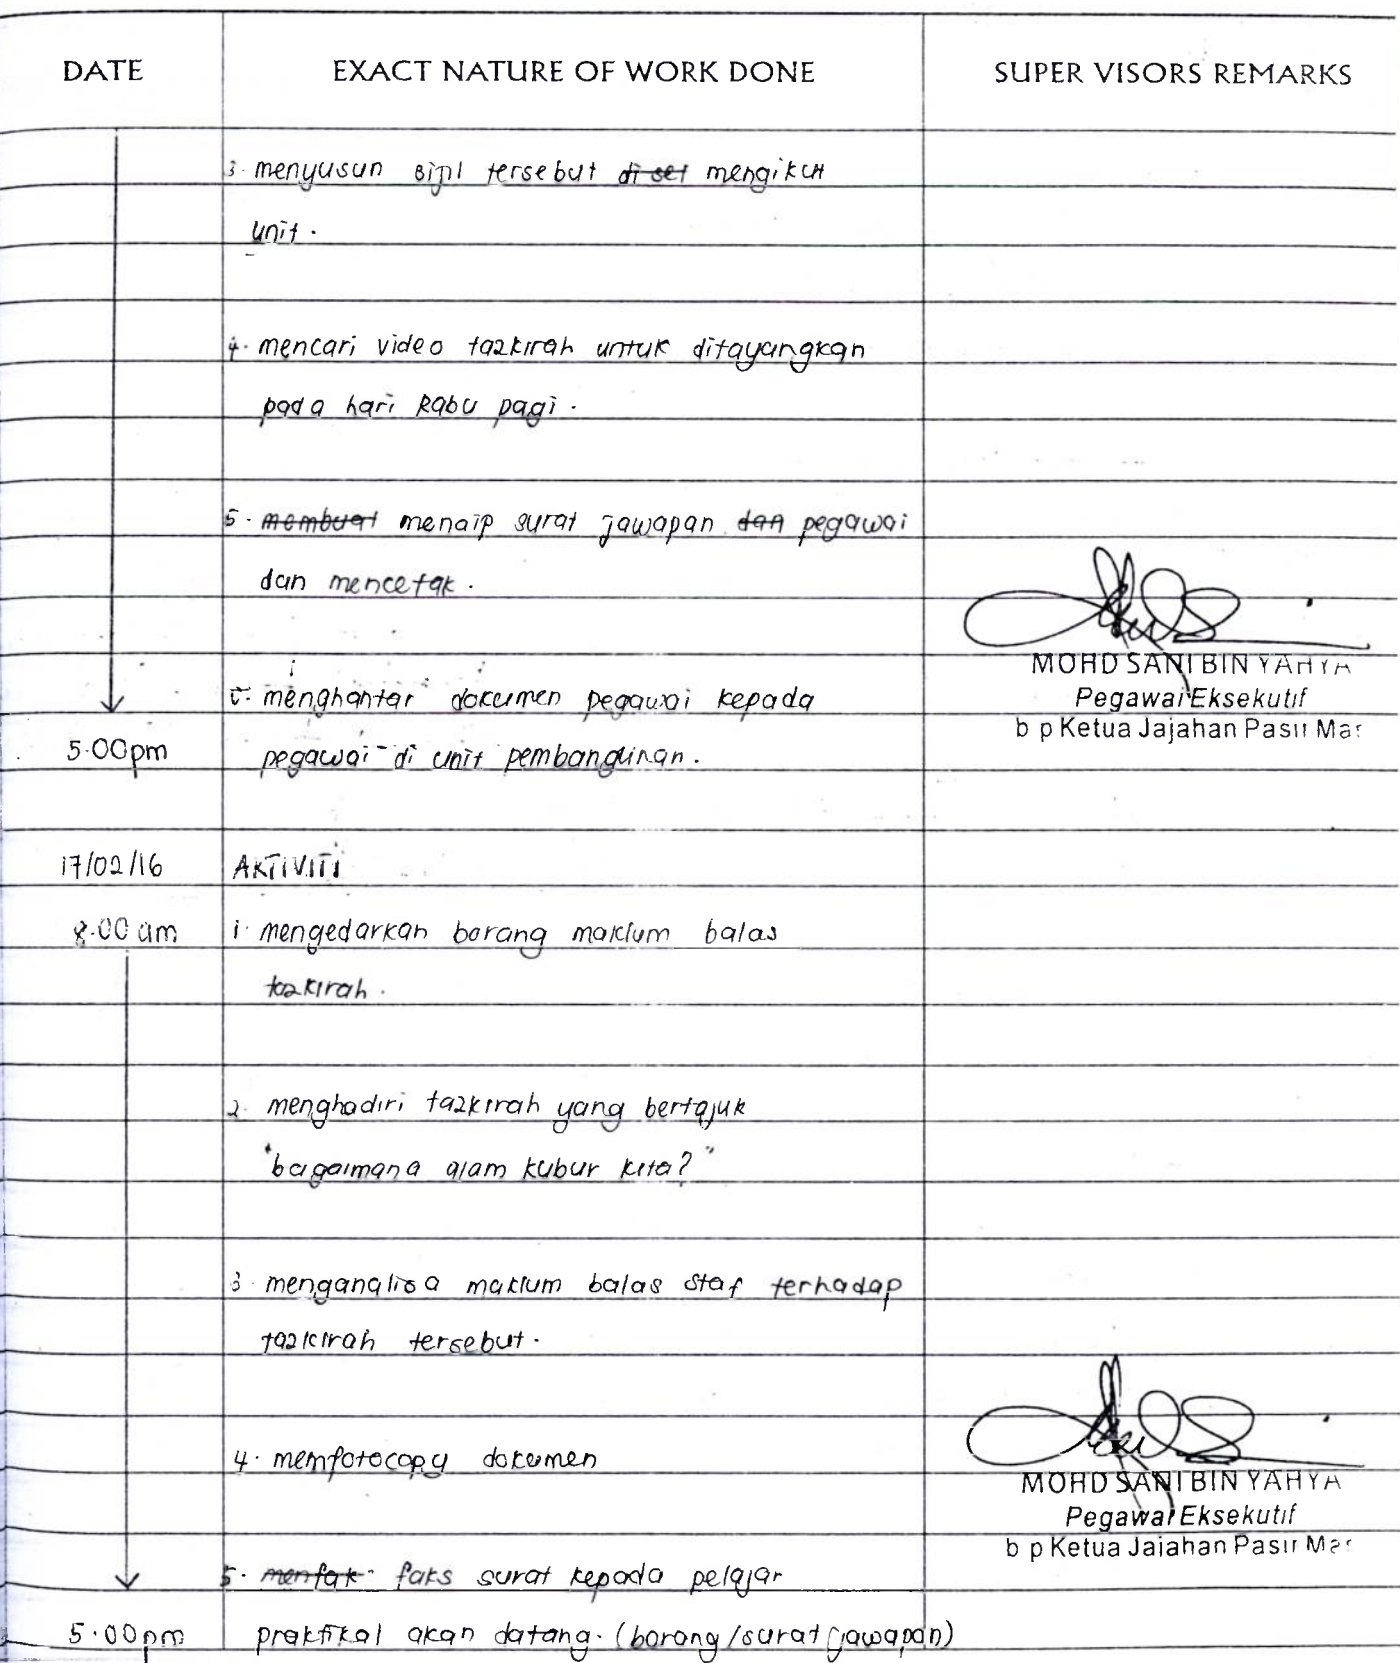 DATE EXACT NATURE OF WORK DONE SUPER VISORS REMARKS
3. menyusun sijil tersebut di set mengikut
unit.
4. mencari video tazkirah untuk ditayangkan
pada hari Rabu pagi.
5. membuat menaip surat jawapan dan pegawai
dan mencetak.
MOHD SANI BIN YAHYA
menghantar dokumen pegawai kepada
Pegawai Eksekutif
b p Ketua Jajahan Pasir Mas
5.00pm pegawai di unit pembangunan.
17/02/16 AKTIVITI
8.00 am 1. mengedarkan borang maklum balas
tazkirah.
2. menghadiri tazkirah yang bertajuk
"bagaimana alam kubur kita?"
3. menganalisa maklum balas staf terhadap
tazkirah tersebut.
4. memfotocopy dokumen
MOHD SANI BIN YAHYA
Pegawai Eksekutif
b p Ketua Jajahan Pasir Mas
5. menfak faks surat kepada pelajar
5.00pm praktikal akan datang. (borang/surat jawapan)